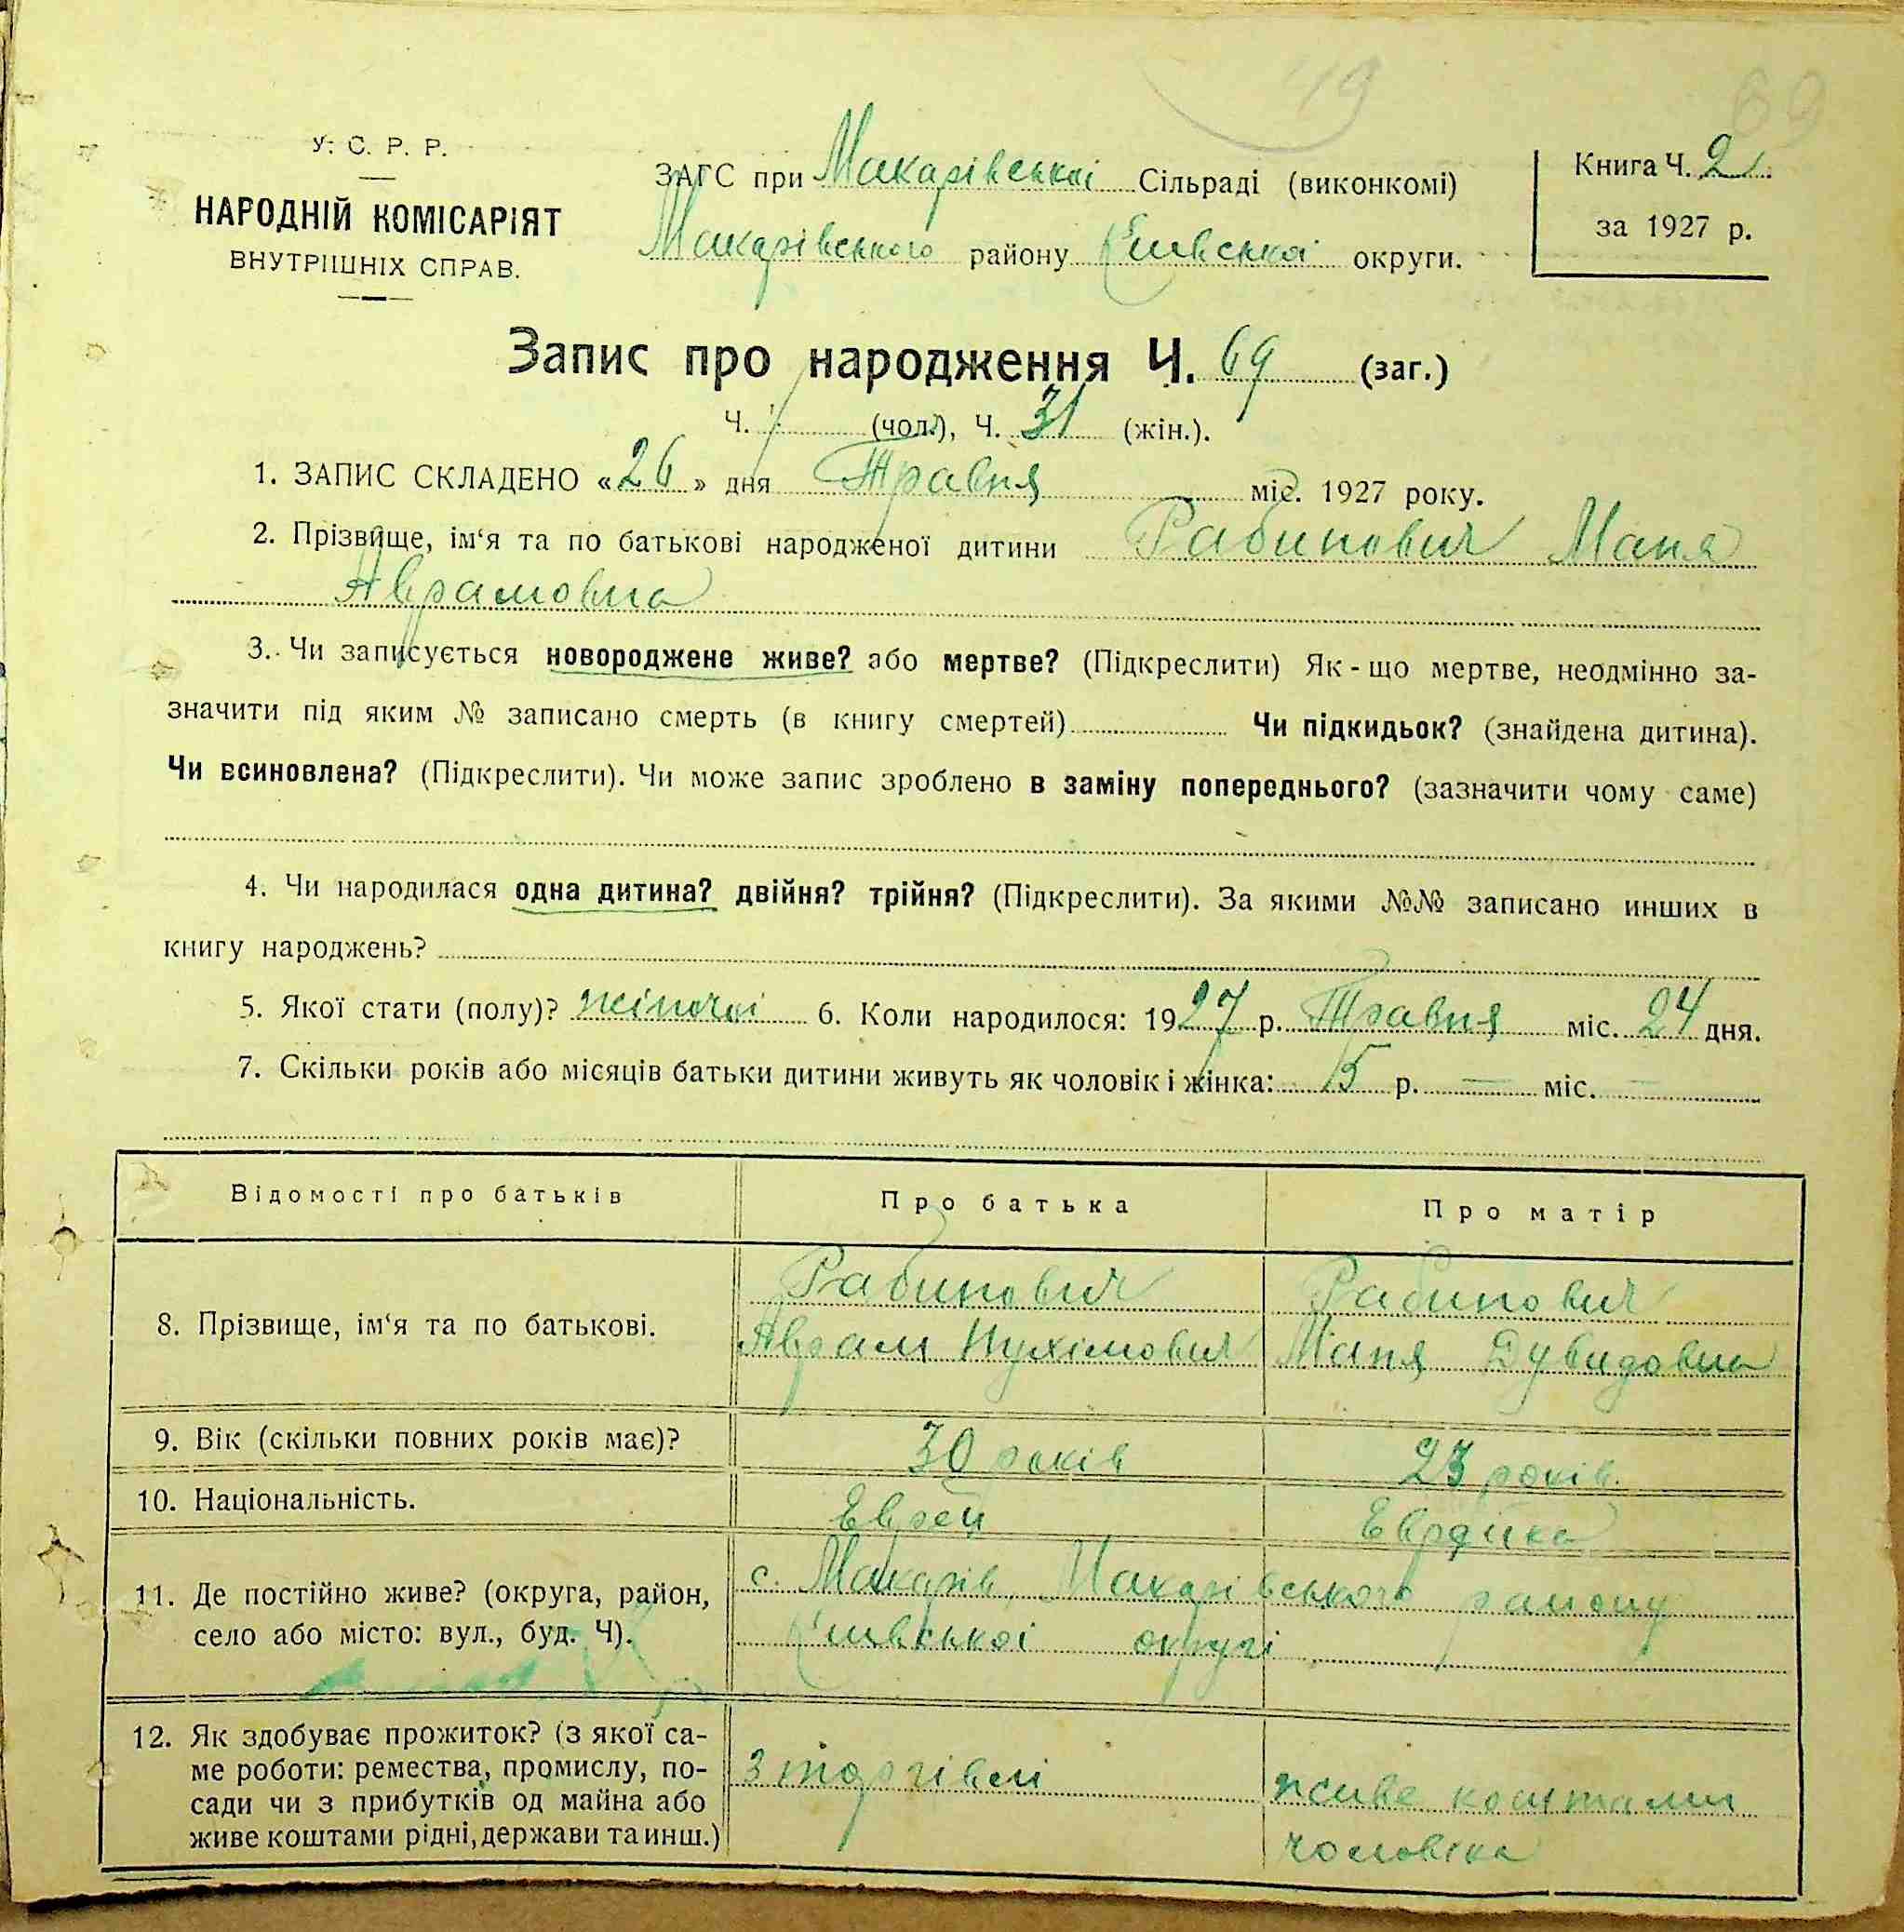 19
69
У. С. Р. Р.
НАРОДНІЙ КОМІСАРІЯТ
ВНУТРІШНІХ СПРАВ.
ЗАГС при Макарівської Сільраді (виконкомі)
Макарівського району Київської округи.
Книга Ч. 21.
за 1927 р.
Запис про народження Ч. 69 (заг.)
Ч. (чол.), Ч. 31 (жін.).
1. ЗАПИС СКЛАДЕНО «26» дня Травня міс. 1927 року.
2. Прізвище, ім‘я та по батькові народженої дитини Рабинович Маня
Аврамовна
3. Чи записується новороджене живе? або мертве? (Підкреслити) Як - що мертве, неодмінно за-
значити під яким № записано смерть (в книгу смертей) Чи підкидьок? (знайдена дитина).
Чи всиновлена? (Підкреслити). Чи може запис зроблено в заміну попереднього? (зазначити чому саме)
4. Чи народилася одна дитина? двійня? трійня? (Підкреслити). За якими №№ записано инших в
книгу народжень?
5. Якої стати (полу)? жіночої 6. Коли народилося: 1927 р. Травня міс. 24 дня.
7. Скільки років або місяців батьки дитини живуть як чоловік і жінка: 5 р. — міс. —
Відомості про батьків Про батька Про матір
8. Прізвище, ім‘я та по батькові.
Рабинович
Аврам Нухімович
Рабинович
Маня Дувидовна
9. Вік (скільки повних років має)? 30 років 23 років.
10. Національність. Еврей Еврейка
11. Де постійно живе? (округа, район,
село або місто: вул., буд. Ч).
с. Макарів, Макарівського району
Київської округі
12. Як здобуває прожиток? (з якої са-
ме роботи: ремества, промислу, по-
сади чи з прибутків од майна або
живе коштами рідні, держави та инш.)
З торгівлі
живе коштами
чоловіка